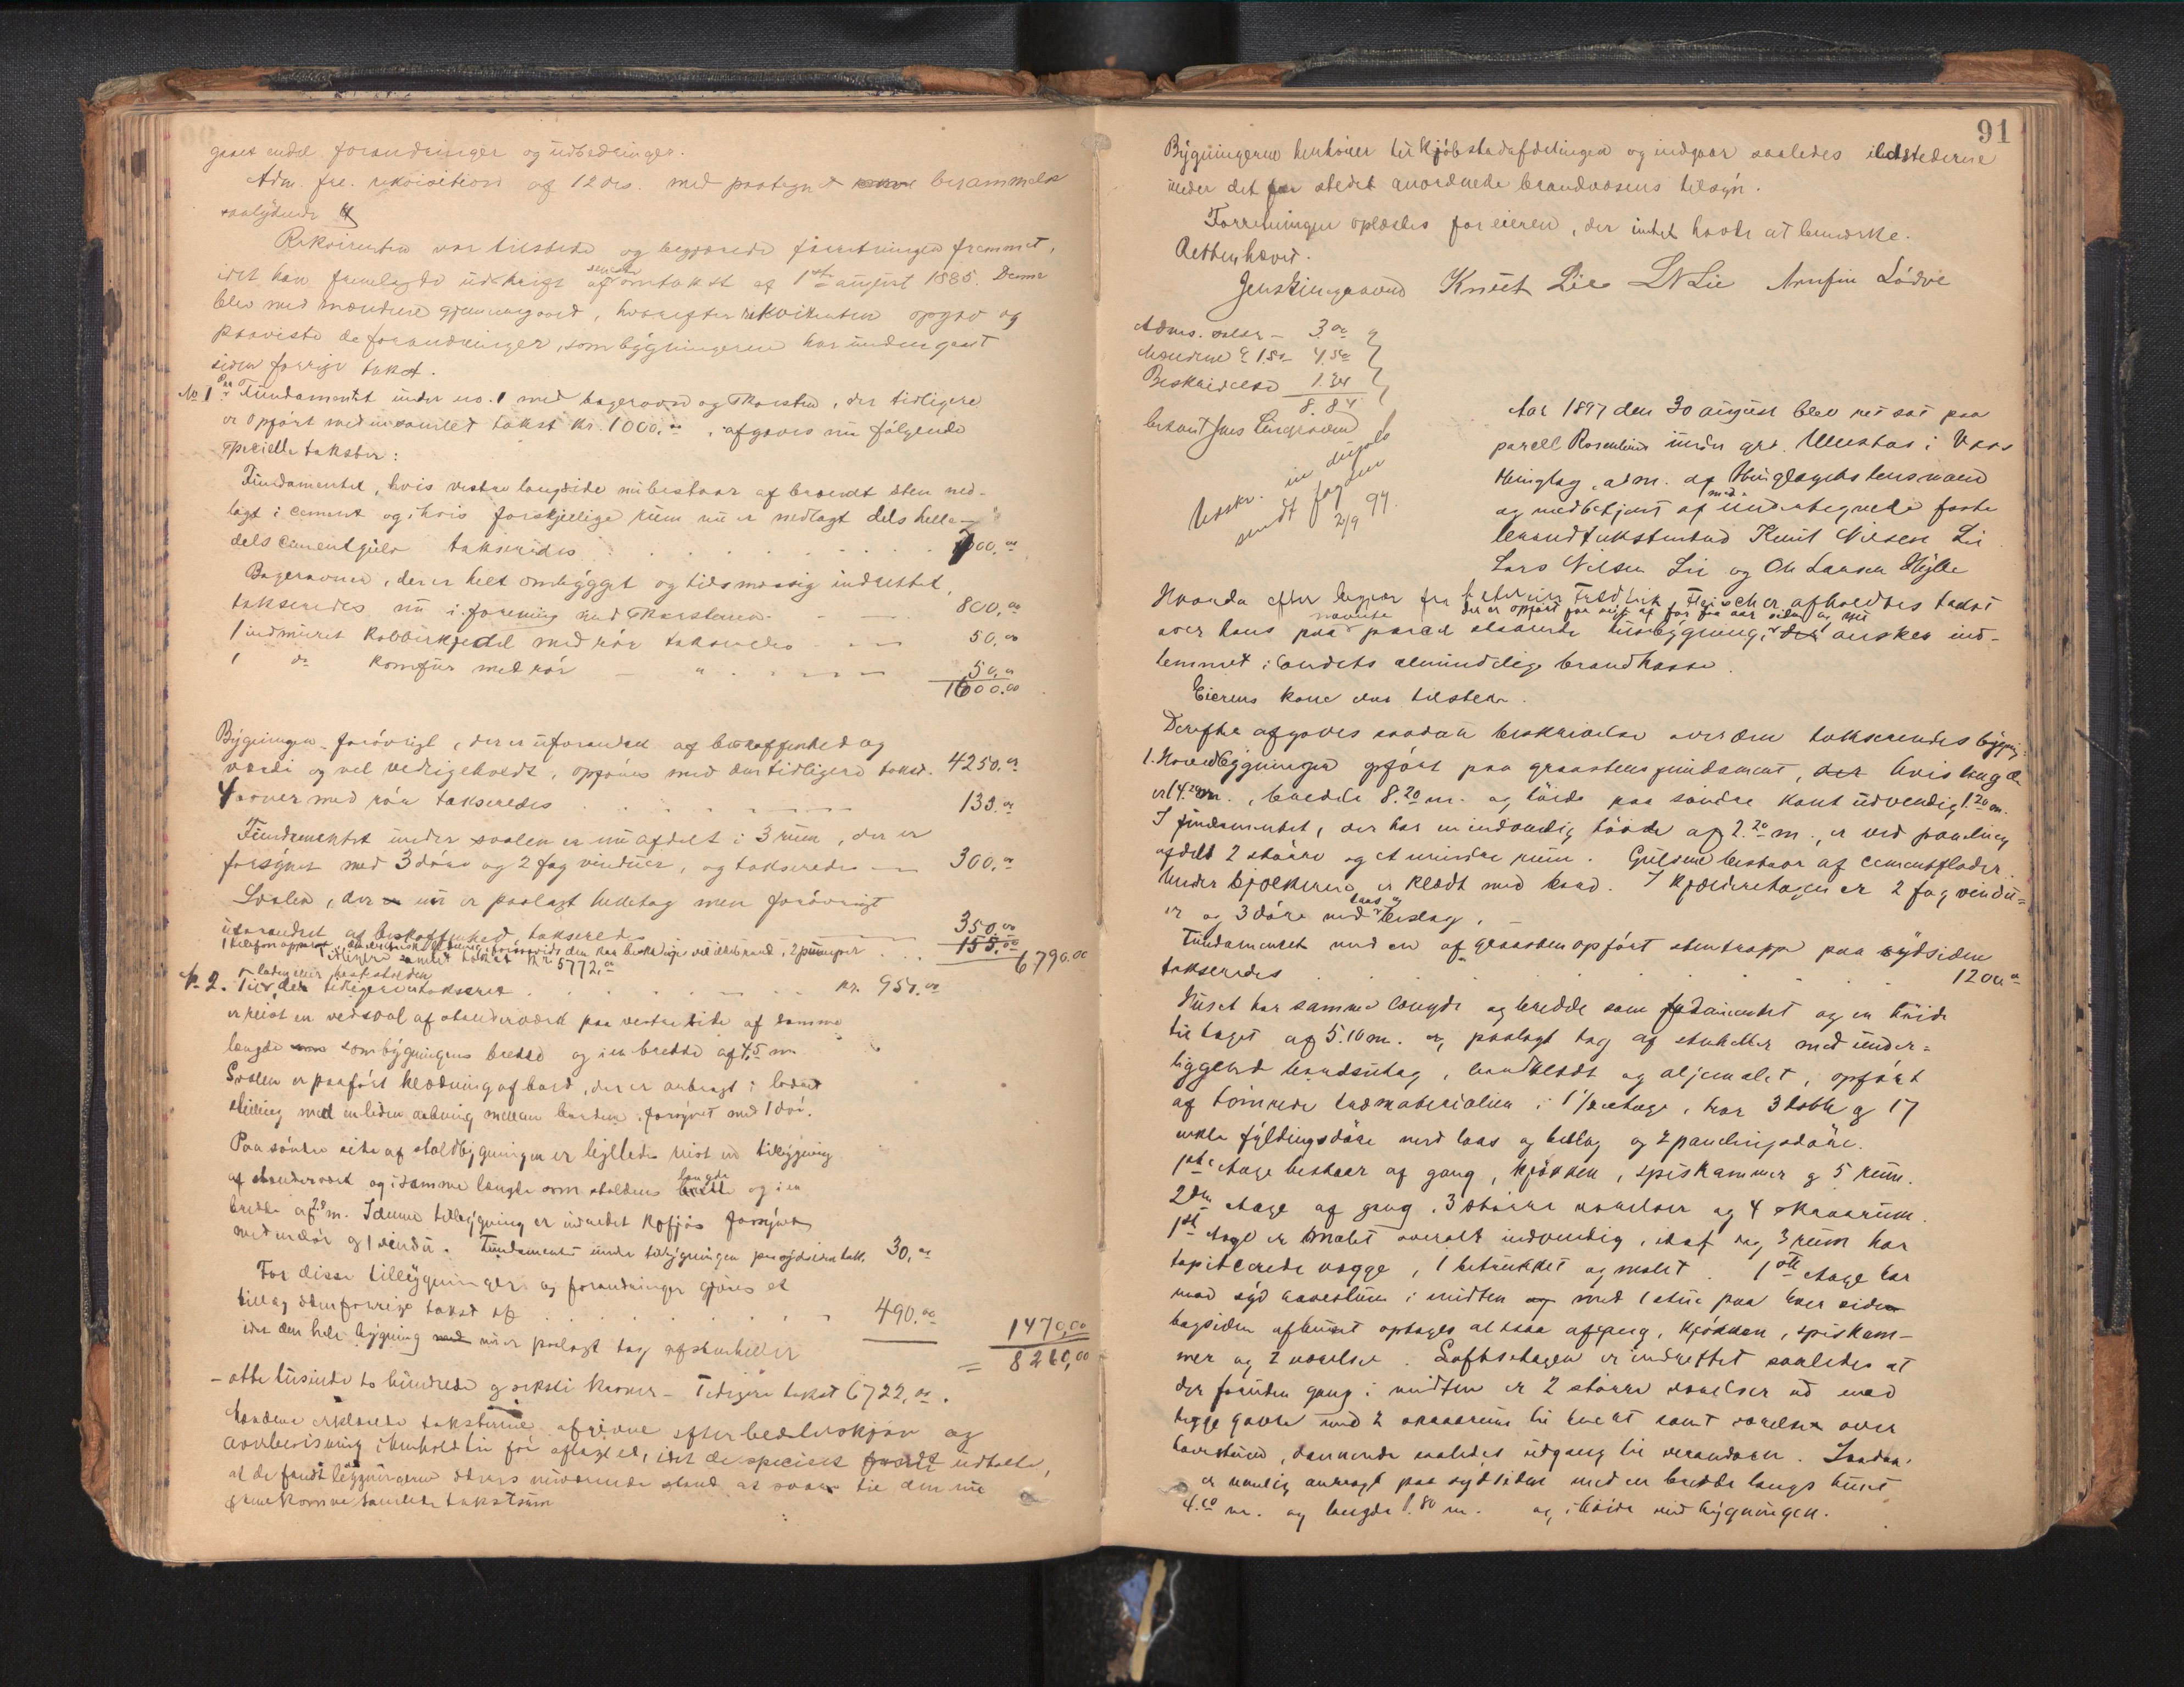 gaaet endel forandringer og udbedringer.
Adm. fre. rekvisition af 12 ds. med paategnet berammelse
saalydende
Rekvirenten var tilstede og begjærede forretningen fremmet,
idet han fremlagde udskrift af seneste omtakst af 1ste august 1885. Denne
blev med mændene gjennemgaaet, hvorefter rekvirenten opgav og
paaviste de forandringer, som bygningerne har undergaaet
siden forrige takst.
No 1 Fundamentet under no. 1 med bagerovn og skorsten, der tidligere
er opført med en samlet takst kr. 1000,00, afgaves nu følgende
specielle takster:
Fundamentet, hvis vestre langside nu bestaar af brændt sten ned-
lagt i cement og i hvis forskjellige rum nu er nedlagt dels helle-
dels cimentgulv takseredes 700,00
Bagerovnen, der er helt ombygget og tidsmæssig indrettet,
takseredes nu i forening med skorstenen 800,00
1 indmuret kobberkjedel med rør takseredes 50,00
1 do komfur med rør " 50,00
1600.00
Bygningen forøvrigt, der er uforandret af beskaffenhed og
værdi og vel vedligeholdt, opføres med den tidligere takst. 4250.00
4 ovner med rør takseredes 135.00
Fundamentet under svalen er nu afdelt i 3 rum, der er
forsynet med 3 døre og 2 fag vinduer, og takseredes 300,00
Svalen, der nu er paalagt helletag men forøvrigt
uforandret af beskaffenhed takseredes 350,00
1 telefonapparat, den kan beskadiges ved ildebrand, 2 pumper 155,00
6790.00
Tidligere samlet takst kr 5772,00
No 2. Til laden eller den tidligere takseret kr. 950,00
er reist en vedsval af stenderværk paa vestre side af samme
længde som bygningens bredde og i en bredde af 4,5 m
Svalen er paaført klædning af bord, der er anbragt i lodret
stilling med en liden aabning mellem bordene, forsynet med 1 dør.
Paa søndre side af staldbygningen er ligeledes reist en tilbygning
af stenderværk og i samme længde som staldens længde og i en
bredde af 2,0 m. I denne tilbygning er indredet kofjøs forsynet
med en dør og 1 vindu. Fundamentet under tilbygningen paa sydsiden tak. 30,00
For disse tilbygninger og forandringer gjøres et
tillæg til den forrige takst af 490.00
1470,00
idet den hele bygning nu er paalagt tag af skurheller
= 8260,00
- otte tusinde to hundrede og seksti kroner - Tidligere takst 6722,00.
Mændene erklærede taksterne afgivne efter bedste skjøn og
overbevisning i henhold til før aflagt ed, idet de specielt udtalte,
at de fandt bygningerne i deres nuværende stand at svare til den nu
fremkomne samlede takstsum
91
Bygningerne henhører til kjøbstadafdelingen og indgaar saaledes ildstederne
under det for stedet anordnede brandvæsens tilsyn.
Forretningen oplæstes for eieren, der intet havde at bemærke.
Retten hævet.
Jens Lingesund Knut Lie LN Lie Arnfin Lødve
Adms. - 3.00
Mændene á 1.50 4.50
Beskrivelse 1.34
8.84
betalt Jens Lingesund
Beskr. in duplo
sendt fogden
2/9 97.
Aar 1897 den 30 august blev ret sat paa
parcell Rosenlund under grd. Ullestad i Vos
thinglag, adm. af thinglagets lensmand
og medbetjent af med undertegnede faste
brandtakstmænd Knut Nielsen Lie
Lars Nilsen Lie og Ole Larsen Hylle
Hvorda efter begjær fra Fredrik Fleischer afholdtes takst
over hans paa nævnte parcel staaende husbygning, der er opført for nogle faa aar siden og ønskes ind-
lemmet i landets almindelige brandkasse.
Eierens kone var tilstede.
Derefter afgaves saadan beskrivelse over den takserendes bygning:
1. Hovedbygningen opført paa graastens fundament, hvis længde
er 14.20 m., bredde 8.20 m. og høide paa søndre kant udvendig 1.20 m.
I fundamentet, der har en indvendig høide af 2.20 m., er ved paneling
afdelt 2 større og et mindre rum. Gulvene bestaar af cementflader.
Under bjelkerne er klædt med bord. I kjelderetagen er 2 fag vindu=
er og 3 døre med laas og beslag. -
Fundamentet med en af graasten opført stentrappe paa sydsiden
takseredes 1200.00
Huset har samme længde og bredde som fundamentet og en høide
til taget af 5.10 m. og paalagt tag af skurheller med under=
liggende bordsutag, bordklædt og oljemalet, opført
af tømrede træmaterialier i 1 1/2 etage, har 3 dobb. og 17
enkle fyldingsdøre med laas og beslag og 2 panelingsdøre.
1ste etage bestaar af gang, kjøkken, spiskammer og 5 rum.
2den etage af gang, 3 større værelser og 4 skraarum.
1ste etage er malet overalt indvendig, idet dog 3 rum har
tapiterede vægge, 1 betrukket og malet. 1ste etage har
mod syd havestuen i midten med 1 stue paa hver side
bagsiden af huset optages altsaa af gang, kjøkken, spiskam-
mer og 2 værelser. Loftsetagen er indrettet saaledes at
der foruden gang i midten er 2 større værelser ud mod
begge gavle med 2 skraarum til hvert samt værelse over
havestuen, dannende saaledes udgang til verandaen. Saadan
er nemlig anbragt paa sydsiden med en bredde langs huset
4.60 m. og længde 1.80 m. og i høide med bygningen.